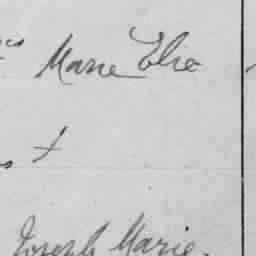 Marie Elie
Joseph Marie